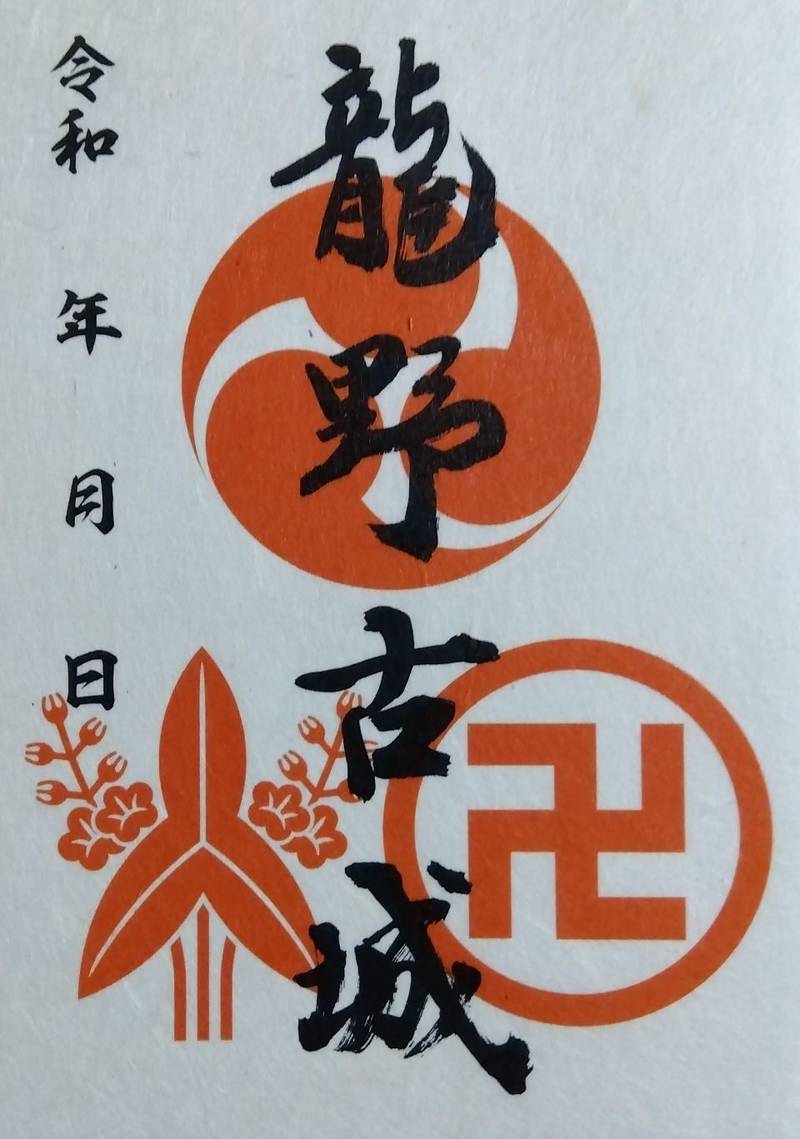 龍野古城
令和 年 月 日